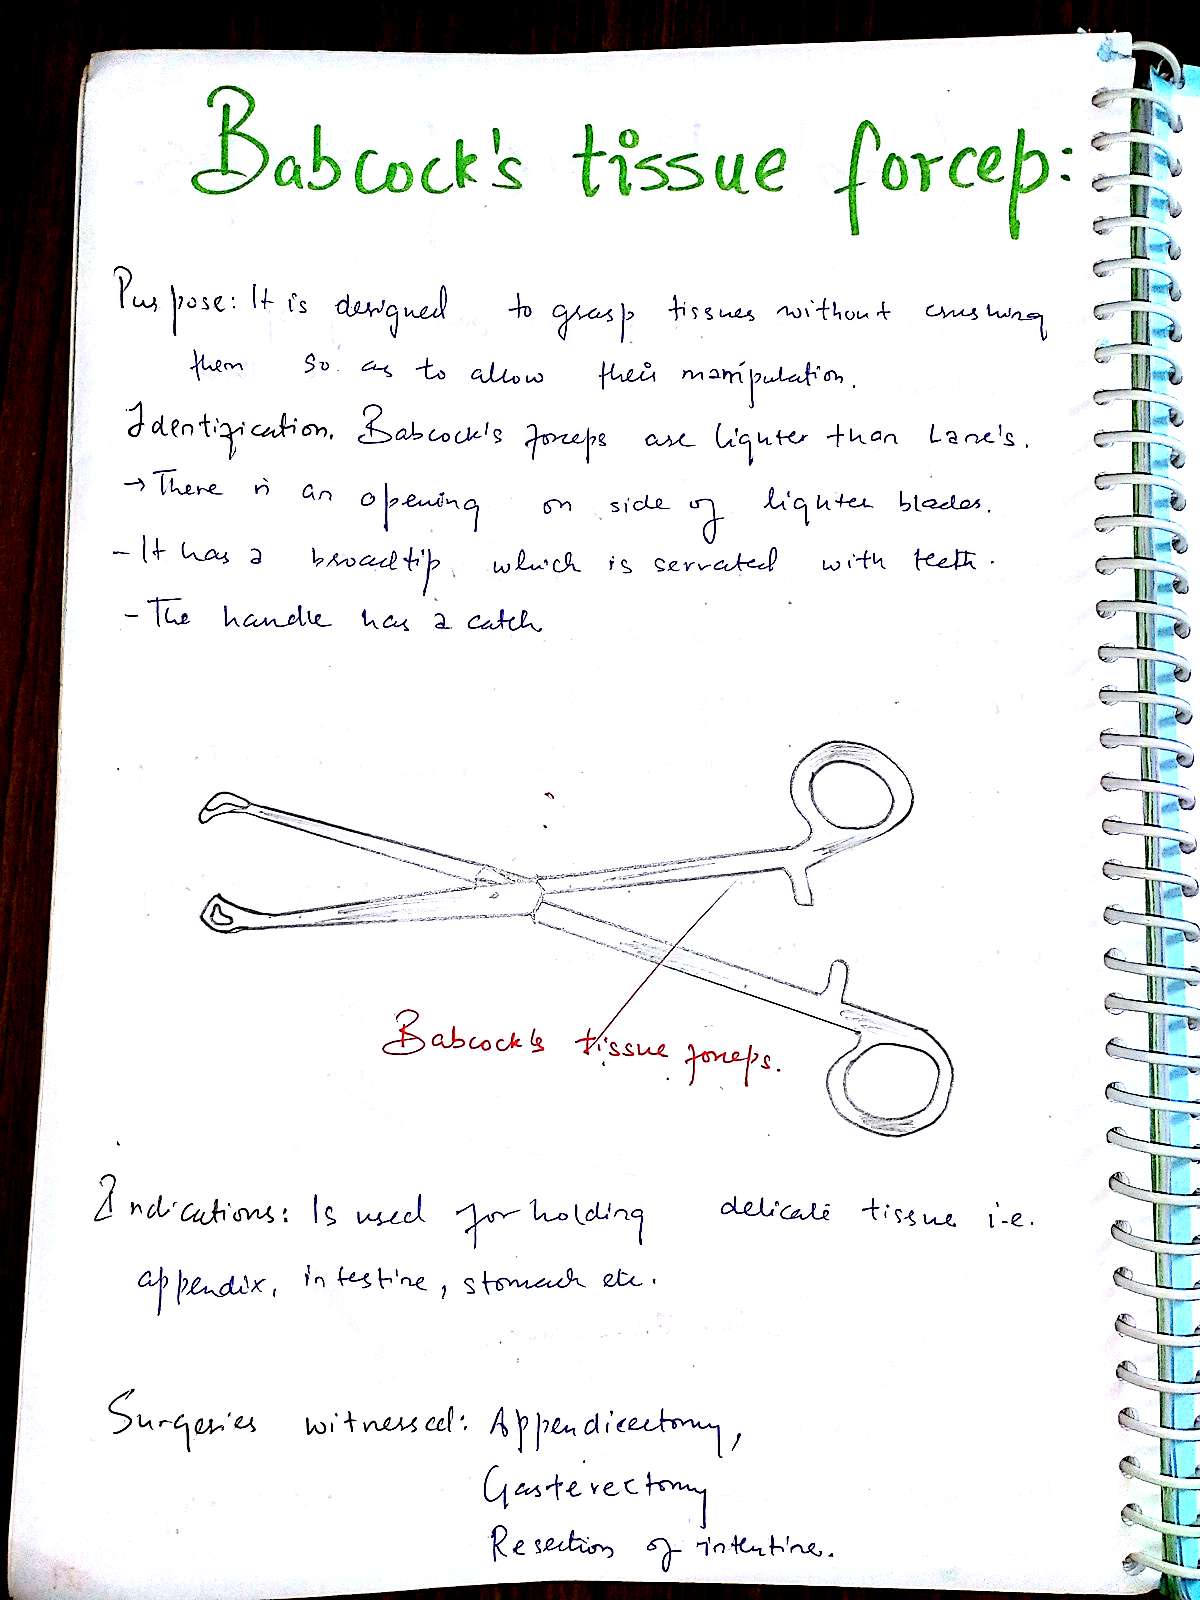 Babcock's tissue forcep:
Purpose: It is designed to grasp tissues without crushing
them so as to allow their manipulation.
Identification. Babcock's forceps are lighter than Lane's.
→ There is an opening on side of lighter blades.
- It has a broad tip which is serrated with teeth.
- The handle has a catch
Babcock's tissue forceps.
Indications: Is used for holding delicate tissue i.e.
appendix, intestine, stomach etc.
Surgeries witnessed: Appendicectomy,
Gasterectomy
Resection of intentine.